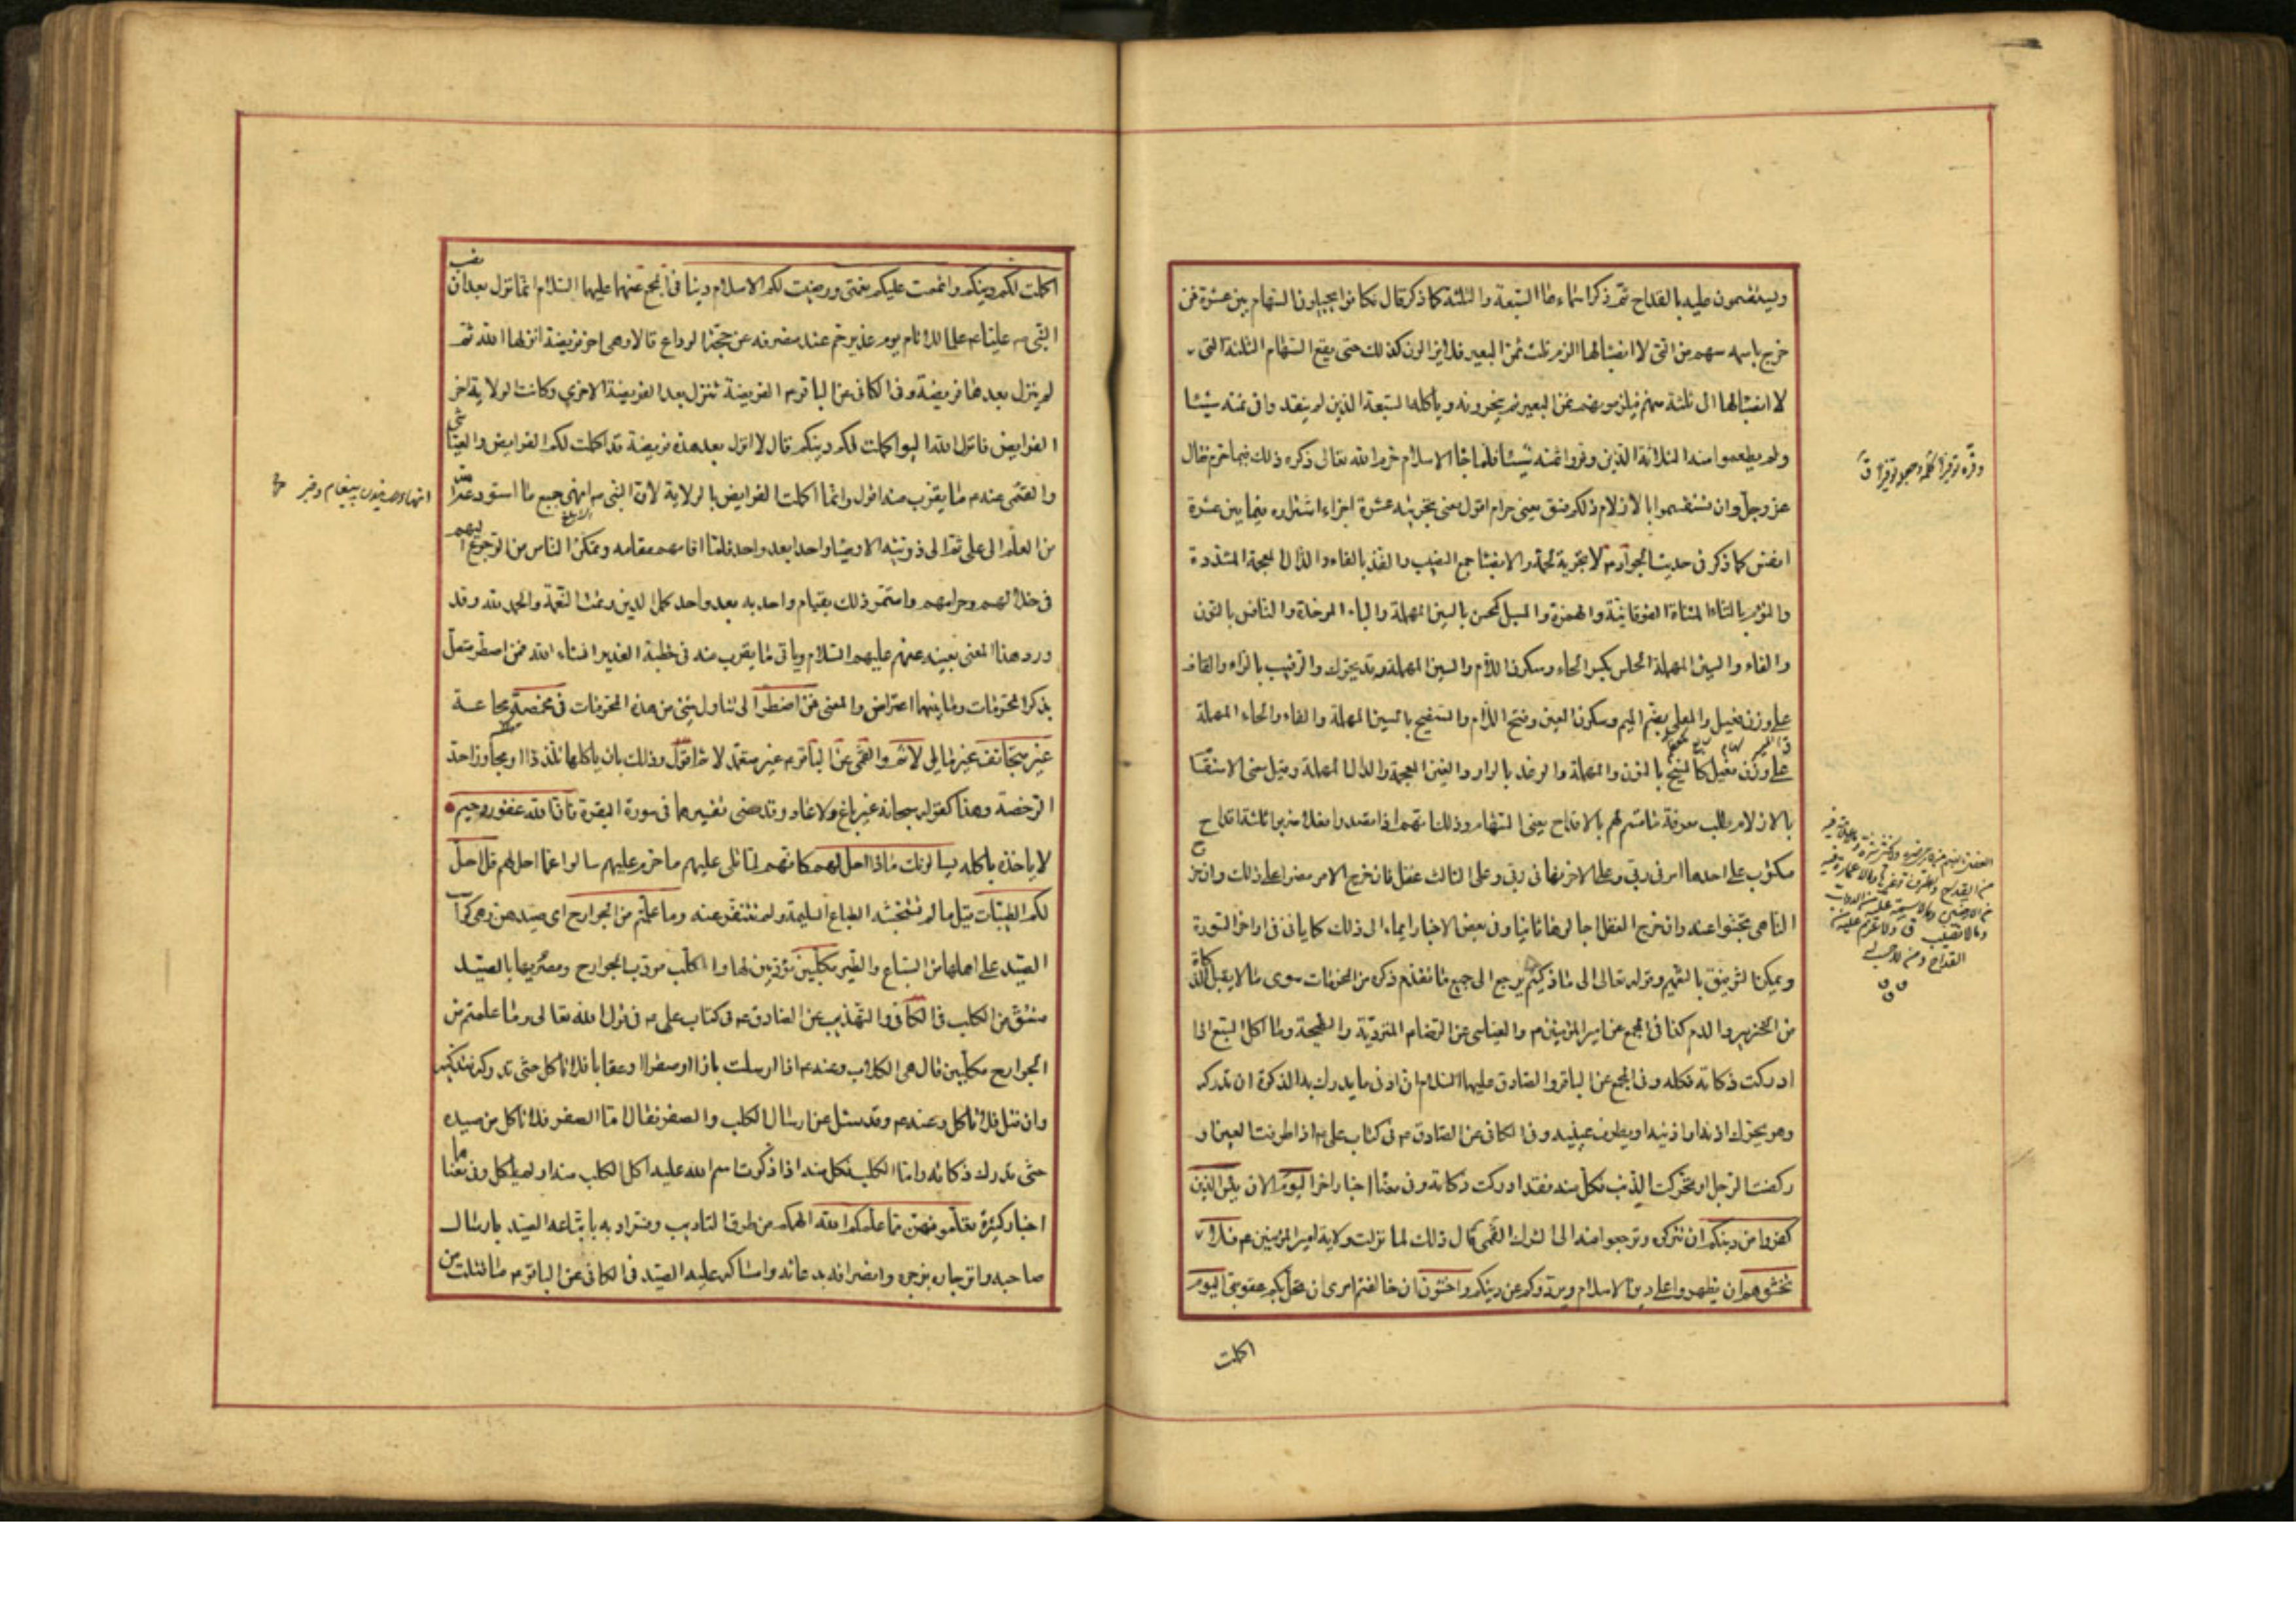 ويستقسمون عليه بالقداح ثم ذكر اسماءها السبعة والثلثة كما ذكر قال فكانوا يجيلون السهام بين عشرة فمن
خرج باسمه سهم من التي لا انصباء لها الزم ثلث ثمن البعير فلا يزالون كذلك حتى يقع السهام الثلثة التي
لا انصباء لها الى ثلثة منهم فيلزمونهم ثمن البعير ثم ينحرونه وياكله السبعة الذين لم ينقدوا في ثمنه شيئا
ولم يطعموا منه الثلاثة الذين وفروا ثمنه شيئا فلما جاء الاسلام حرم الله تعالى ذكره ذلك فيما حرم فقال
عز وجل وان تستقسموا بالازلام ذلكم فسق يعني حرام اقول معنى تجزيته عشرة اجزاء اشتراوه فيما بين عشرة
انفس كما ذكر في حديث الجواد م لا تجزية لحمه والانصباء جمع النصيب والفذ بالفاء والذال المعجمة المشددة
والتوءم بالتاء المثناة الفوقانية والهمزة والمسبل كمحسن بالسين المهملة والباء الموحدة والنافس بالنون
والفاء والسين المهملة الحلس بكسر الحاء وسكون اللام والسين المهملة وقد يحرك والرقيب بالراء والقاف
على وزن فعيل والمعلى بضم الميم وسكون العين وفتح اللام والسفيح بالسين المهملة والفاء والحاء المهملة
على وزن فعيل كالمنيح بالنون والمهملة والوغد بالواو والغين المعجمة والدال المهملة وقيل معنى الاستقسا
بالازلام طلب معرفة ما قسم لهم بالاقداح يعني السهام وذلك انهم اذا قصدوا فعلا ضربوا ثلثة اقداح
مكتوب على احدها امرني ربي وعلى الاخر نهاني ربي وعلى الثالث غفل فان خرج الامر مضوا على ذلك وان خرج
الناهي تجنبوا عنه وان خرج الغفل اجالوها ثانيا وفي بعض الاخبار ايماء الى ذلك كما ياتي في اواخر السورة
ويمكن التوفيق بالتعميم وقوله تعالى الا ما ذكيتم يرجع الى جميع ما تقدم ذكره من المحرمات سوى ما لا يقبل الذكاة
من الخنزير والدم كذا في المجمع عن امير المؤمنين م والعياشي عن الرضا م المتردية والنطيحة وما اكل السبع اذا
ادركت ذكاته فكله وفي المجمع عن الباقر والصادق عليهما السلام ان ادنى ما يدرك به الذكوة ان تدركه
وهو يحرك اذنه او ذنبه او يطرف عينيه وفي الكافي عن الصادق م في كتاب علي م اذا طرفت العين او
ركضت الرجل او تحركت الذنب فكل منه فقد ادركت ذكاته وفي معناه اخبار اخر اليوم الان يئس الذين
كفروا من دينكم ان تتركوه وترجعوا منه الى الشرك القمي قال ذلك لما نزلت ولاية امير المؤمنين ع فلا
تخشوهم ان يظهروا على دين الاسلام ويردوكم عن دينكم واخشون ان خالفتم امري ان تحل بكم عقوبتي اليوم
اكملت
اكملت لكم دينكم واتممت عليكم نعمتي ورضيت لكم الاسلام دينا في المجمع عنهما عليهما السلام انما نزل بعد ان نصب
النبي م عليا ع علما للانام يوم غدير خم عند منصرفه عن حجة الوداع قالا وهي اخر فريضة انزلها الله ثم
لم ينزل بعدها فريضة وفي الكافي عن الباقر م الفريضة تنزل بعد الفريضة الاخرى وكانت الولاية اخر
الفرايض فانزل الله اليوم اكملت لكم دينكم قال لا انزل بعد هذه فريضة قد اكملت لكم الفرايض والعياشي
والقمي عنه م ما يقرب منه اقول وانما اكملت الفرايض بالولاية لان النبي م انهى جميع ما استودعه الله
من العلم الى علي ثم الى ذريته الاوصياء واحدا بعد واحد فلما اقامهم مقامه وتمكن الناس من الرجوع اليهم
في حلالهم وحرامهم واستمر ذلك بقيام واحد به بعد واحد كمل الدين وتمت النعمة والحمد لله وقد
ورد هذا المعنى بعينه عنهم عليهم السلام وياتي ما يقرب منه في خطبة الغدير انشاء الله فمن اضطر متصل
بذكر المحرمات وما بينهما اعتراض والمعنى فمن اضطر الى تناول شيء من هذه المحرمات في مخمصة مجاعة
غير متجانف غير مايل لاثم والقمي عن الباقر م غير متعمد لاثم اقول وذلك بان ياكلها تلذذا او مجاوزا حد
الرخصة وهذا كقوله سبحانه غير باغ ولا عاد وقد مضى تفسيرهما في سورة البقرة فان الله غفور رحيم
لا ياخذه باكله يسالونك ماذا احل لهم كانهم لما تلي عليهم ما حرم عليهم سالوا عما احل لهم قل احل
لكم الطيبات قيل ما لم تستخبثه الطباع السليمة ولم تتنفر عنه وما علمتم من الجوارح اي صيدهن وهي كواسب
الصيد على اهلها من السباع والطير مكلبين مؤدبين لها والمكلب مؤدب الجوارح ومضريها بالصيد
مشتق من الكلب في الكافي والتهذيب عن الصادق م في كتاب علي م في قول الله تعالى وما علمتم من
الجوارح مكلبين قال هي الكلاب وعنه م اذا ارسلت بازا او صقرا او عقابا فلا تاكل حتى تدركه فتذكيه
وان قتل فلا تاكل وعنه م وقد سئل عن ارسال الكلب والصقر فقال اما الصقر فلا تاكل من صيده
حتى تدرك ذكاته واما الكلب فكل منه اذا ذكرت اسم الله عليه اكل الكلب منه او لم ياكل وفي معناها
اخبار كثيرة تعلمونهن مما علمكم الله الهمكم من طرق التاديب وفسر ادبه باتباعه الصيد بارسال
صاحبه وانزجاره بزجره وانصرافه بدعائه وامساكه عليه الصيد في الكافي عن الباقر م ما قتلت من